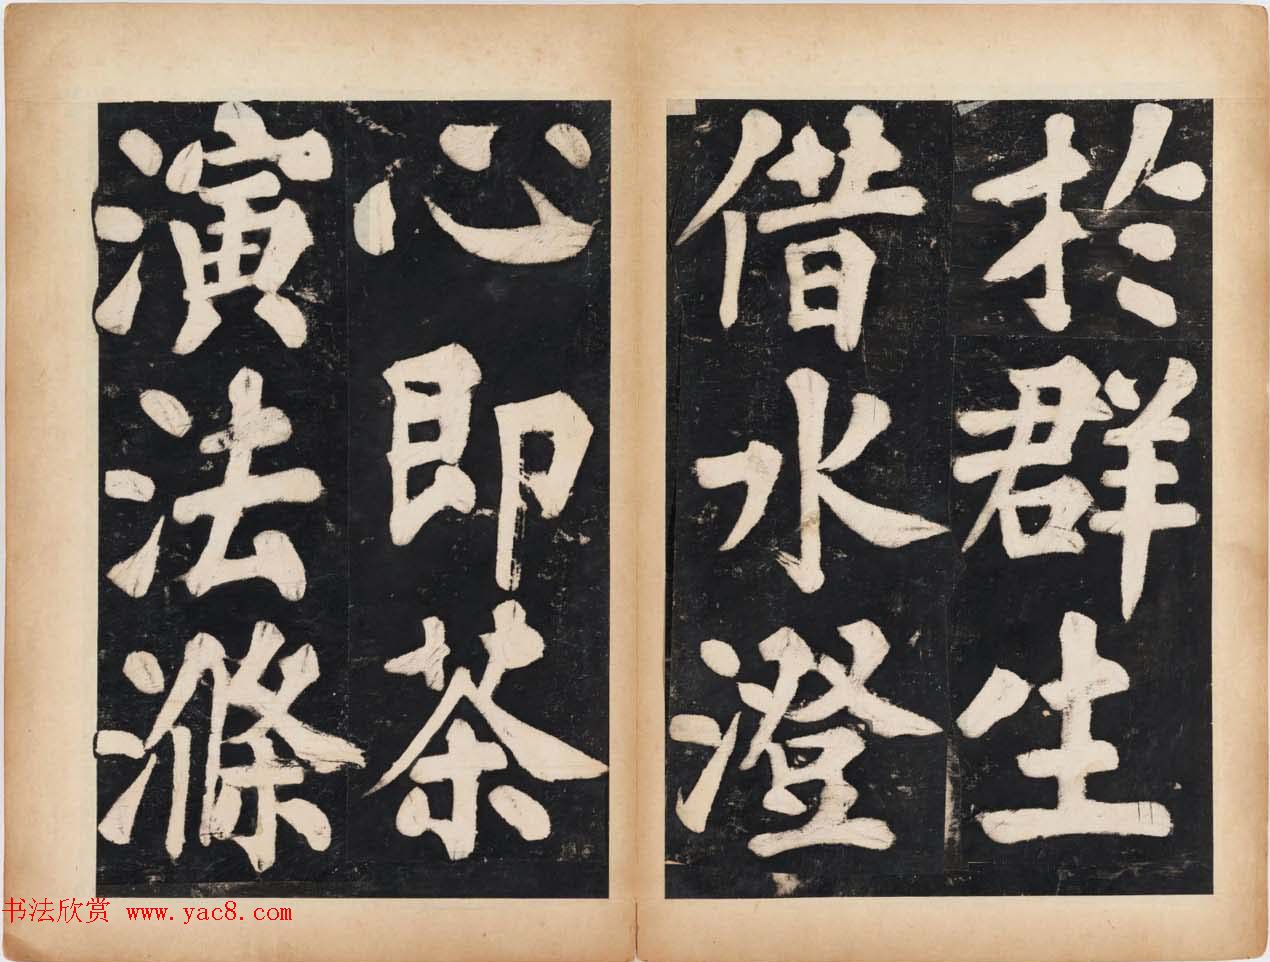 於群生
借水澄
心即茶
演法滌
书法欣赏 www.yac8.com